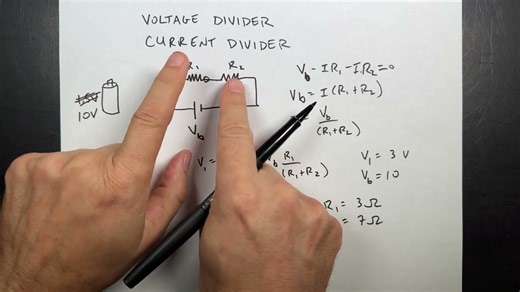 VOLTAGE DIVIDER
CURRENT DIVIDER
R₁ R₂
10V
V_b
V_b - IR₁ - IR₂ = 0
V_b = I (R₁ + R₂)
V_b
(R₁ + R₂)
V₁ = V_b R₁
(R₁ + R₂)
V₁ = 3 V
V_b = 10
R₁ = 3 Ω
= 7 Ω